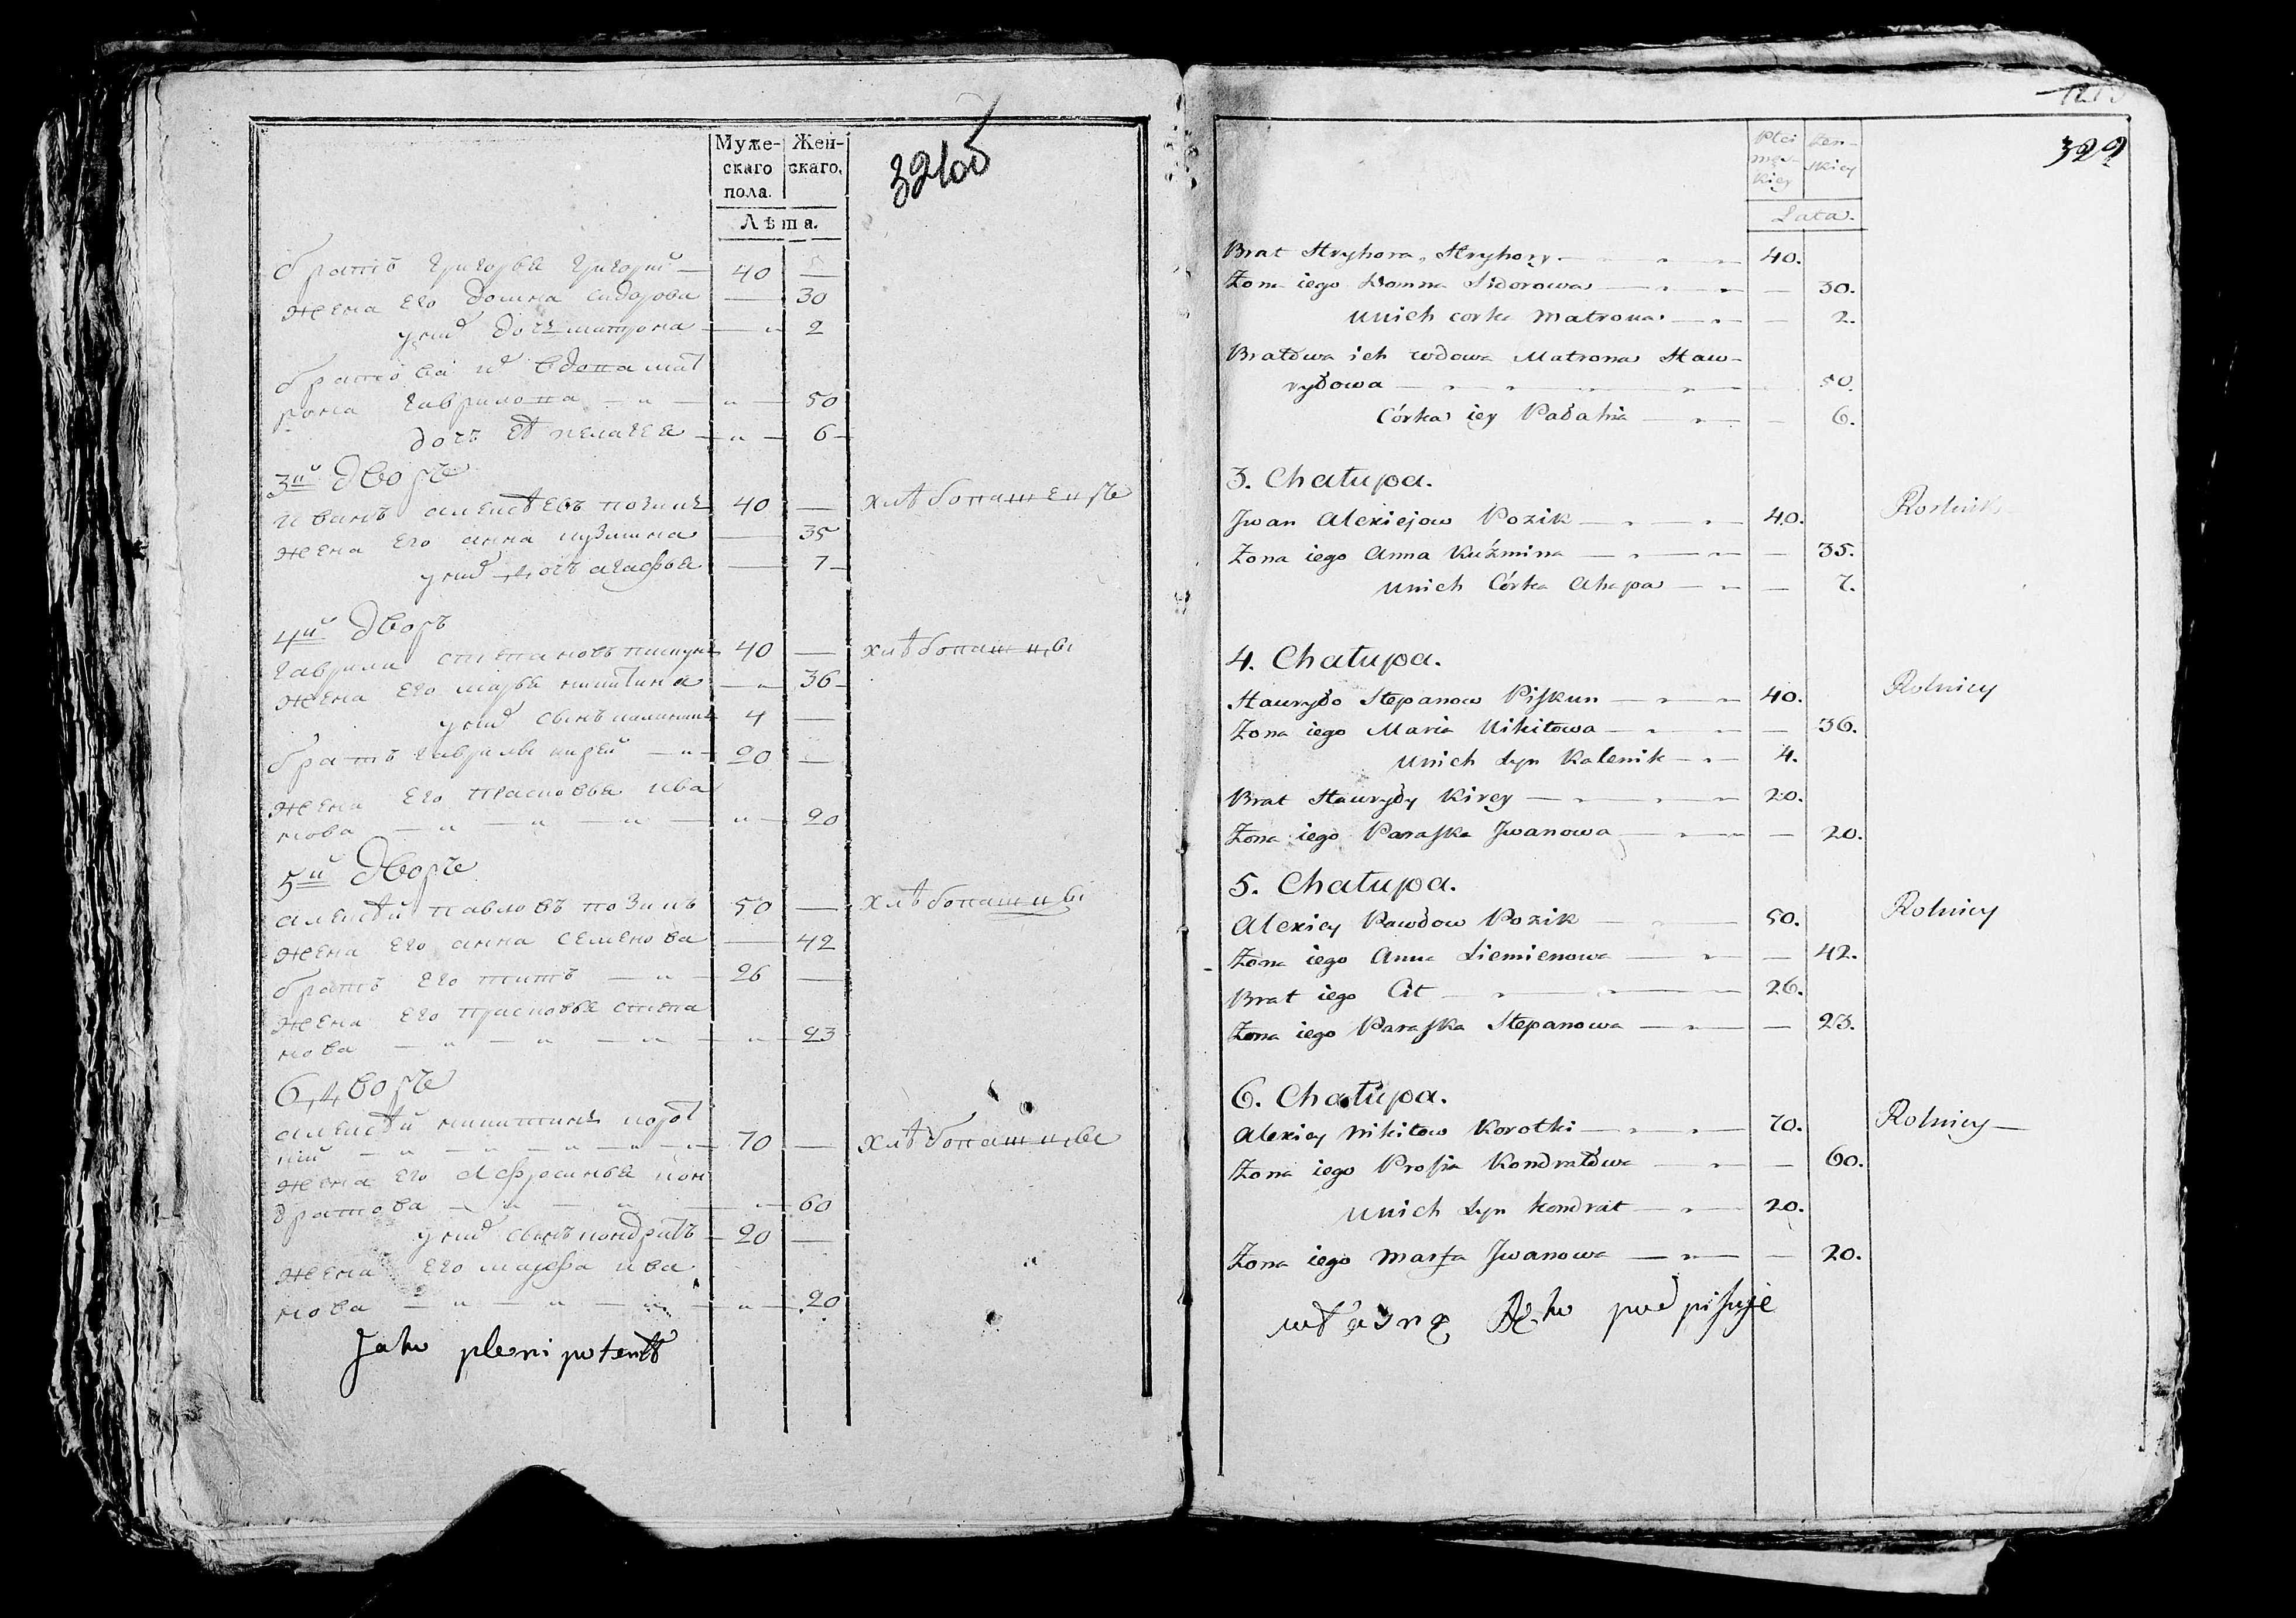 Муже-
скаго
пола.
Жен-
скаго.
Лѣта.
321об
братъ григорья григорий — 40 —
жена его домна сидорова — 30
у них дочь матрона — 2
братова их вдова мат
рона гаврилова — 50
дочь её пелагея — 6
3й дворъ
иванъ алексѣевъ позикъ 40 — хлѣбопашецъ
жена его анна кузмина — 35
у них дочь агафья — 7
4й дворъ
гаврила степановъ пискунъ 40 — хлѣбопашцы
жена его марья никитина — 36
у них сынъ каленикъ 4 —
братъ гаврилы кирей — 20 —
жена его прасковья ива
нова — 20
5й дворъ
алексѣй павловъ позикъ 50 — хлѣбопашцы
жена его анна семенова — 42
братъ его титъ — 26 —
жена его прасковья степа
нова — 23
6, дворъ
алексѣй никитинъ корот
кий — 70 — хлѣбопашцы
жена его афросинья кон
дратова — 60
у них сынъ кондратъ — 20 —
жена его марфа ива
нова — 20
Jako plenipotent
1213
322
Płci
męz-
kiey
Żen-
skiey
Lata.
Brat Hryhora, Hryhory — 40.
Żona iego Domna Sidorowa — 30.
u nich corka Matrona — 2.
Bratowa ich wdowa Matrona Haw-
ryłowa — 50.
Córka iey Pałahia — 6.
3. Chałupa.
Jwan Alexiejow Pozik — 40. Rolnik
Żona iego Anna Kuźmina — 35.
u nich Córka Ahapa — 7.
4. Chałupa.
Hawryło Stepanow Piskun — 40. Rolnicy
Żona iego Maria Nikitowa — 36.
u nich syn Kalenik — 4.
Brat Hawryły Kirey — 20.
Żona iego Paraska Jwanowa — 20.
5. Chałupa.
Alexiey Pawłow Pozik — 50. Rolnicy
Żona iego Anna Siemienowa — 42.
Brat iego Cit — 26.
Żona iego Paraska Stepanowa — 23.
6. Chałupa.
Alexiey Nikitow Korotki — 70. Rolnicy —
Żona iego Prosia Kondratowa — 60.
u nich syn Kondrat — 20.
Żona iego Marfa Jwanowa — 20.
własną Ręko podpisuje